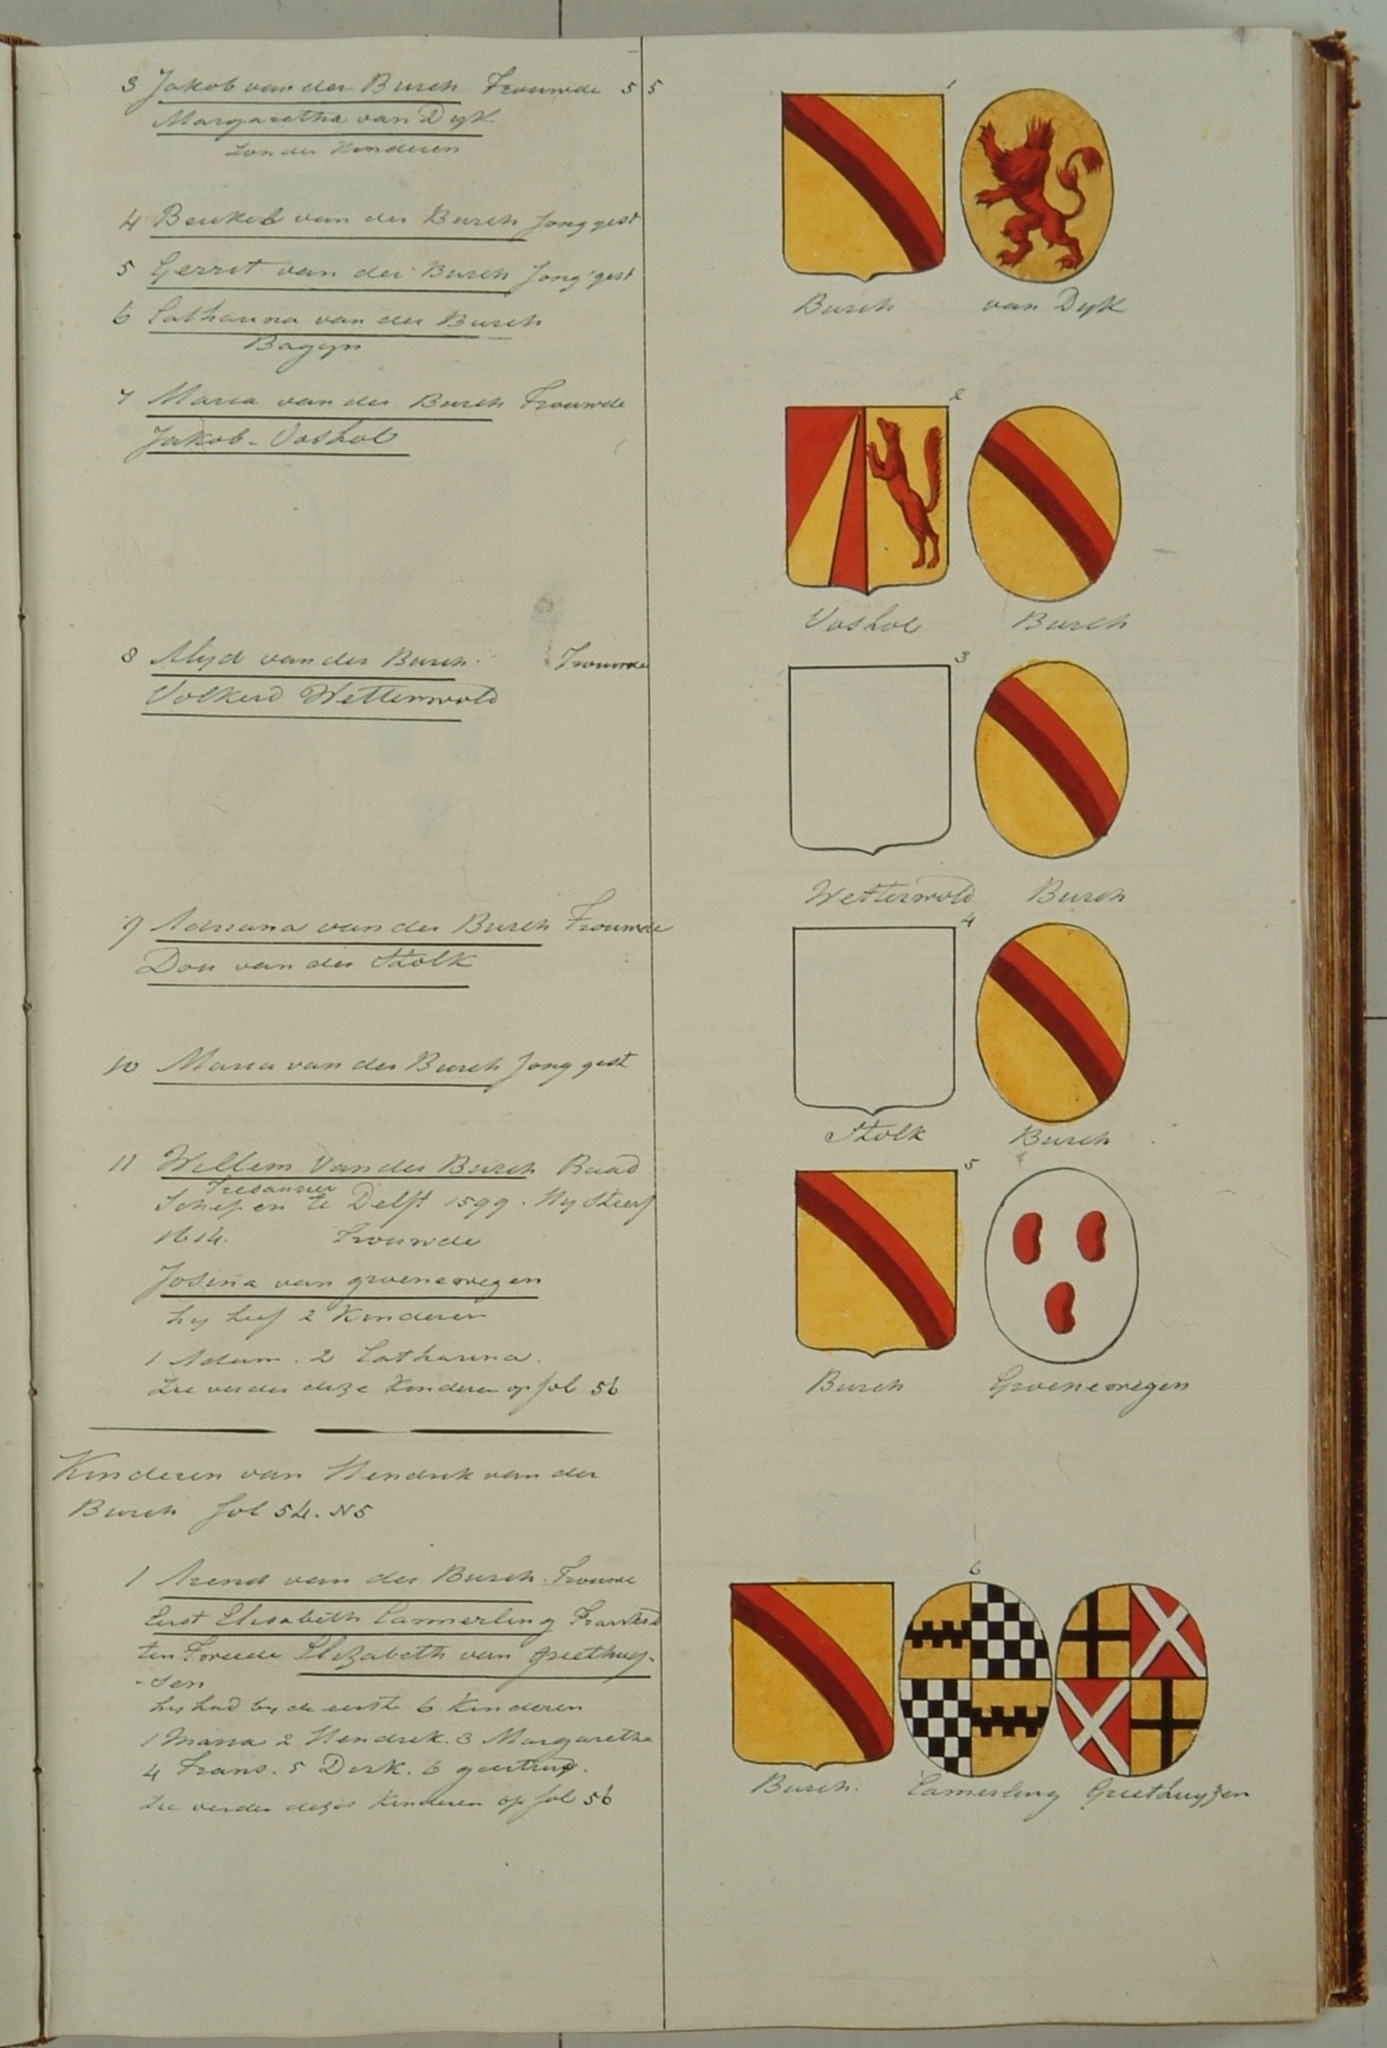 3 Jakob van der Burch Trouwde 55
Margaretha van Dyk
zonder Kinderen
4 Beukel van der Burch Jong gest
5 Gerrit van der Burch Jong gest
6 Catharina van der Burch
Bagyn
7 Maria van der Burch Trouwde
Jakob Voshol
8 Alyd van der Burch Trouwde
Volkerd Wetterwold
9 Adriana van der Burch Trouwde
Don van der Stolk
10 Maria van der Burch Jong gest
11 Willem Van der Burch Raad
Tresaurier
Schepen te Delft 1599. Hy Sterf
1614. Trouwde
Josina van groenewegen
hy lief 2 Kinderen
1 Adam. 2 Catharina.
Zie verder deze Kinderen op fol 56
Kinderen van Hendrik van der
Burch fol 54. N5
1 Arend van der Burch Trouwe
Eerst Elisabeth Cammerling
ten Tweede Elizabeth van griethuy-
-sen
hy had by de eerste 6 Kinderen
1 Maria 2 Hendrik. 3 Margaretha
4 Frans. 5 Dirk. 6 geertruy.
Zie verder deze Kinderen op fol 56
1
Burch van Dyk
2
Voshol Burch
3
Wetterwold Burch
4
Stolk Burch
5
Burch Groenewegen
6
Burch. Camerling Griethuyzen